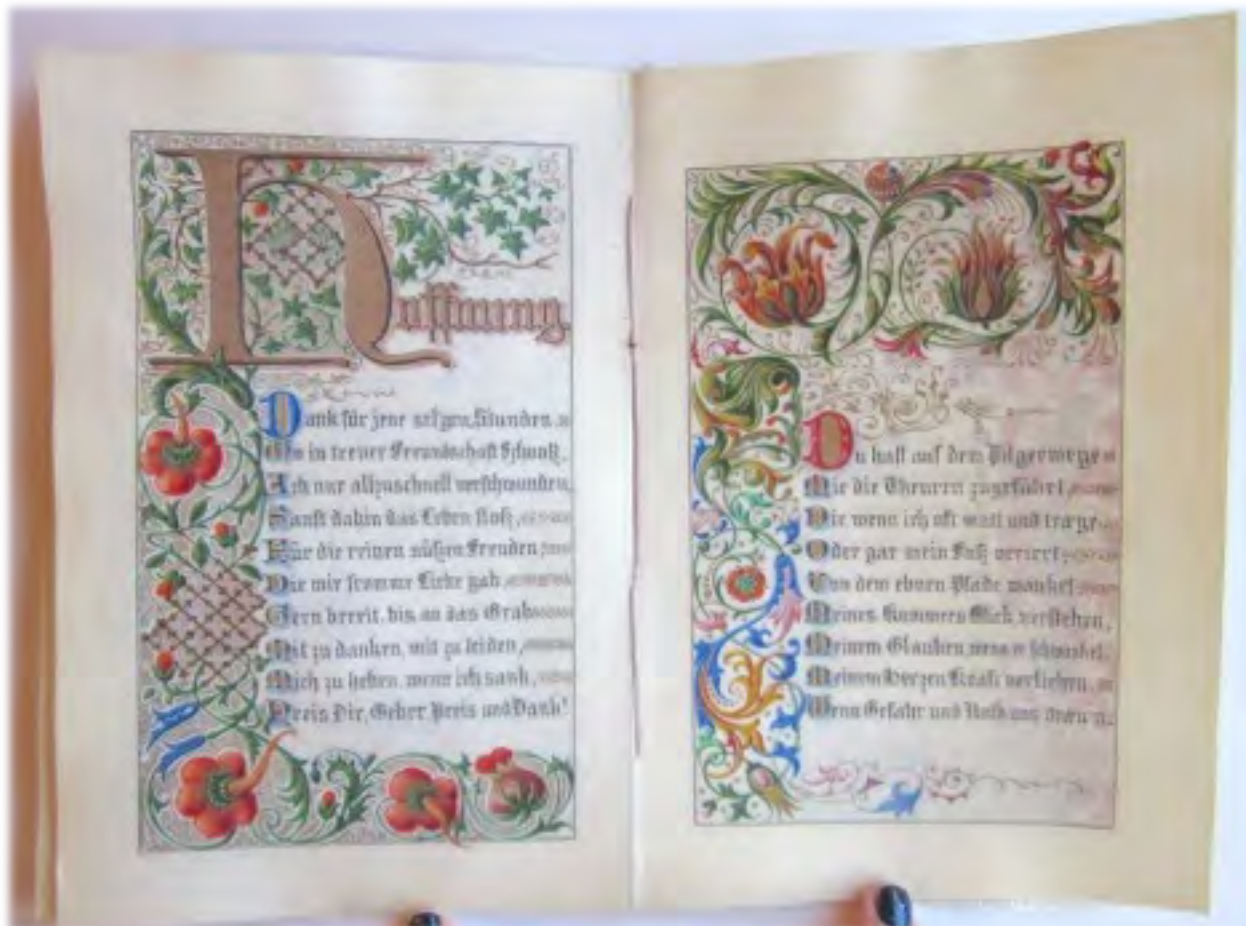 Hoffnung.
Dank für jene selgen Stunden
in treuer Freundschaft
Ach nur allzuschnell verschwunden,
Sanft dahin das Leben floß,
Für die reinen süßen Freuden
Die mir fromme Liebe gab
Gern bereit, bis an das Grab
Mit zu danken, mit zu leiden,
Mich zu heben, wenn ich sank,
Preis Dir, Geber Preis und Dank!
Du hast auf dem Pilgerwege
Mir die Theuren zugeführt,
Die wenn ich oft matt und träge
Oder gar mein Fuß verirrt
Von dem ebnen Pfade wanket
Meines Kummers Blick verstehen,
Meinem Glauben, wenn er schwanket,
Meinem Herzen Kraft verliehen,
Wenn Gefahr und Noth uns